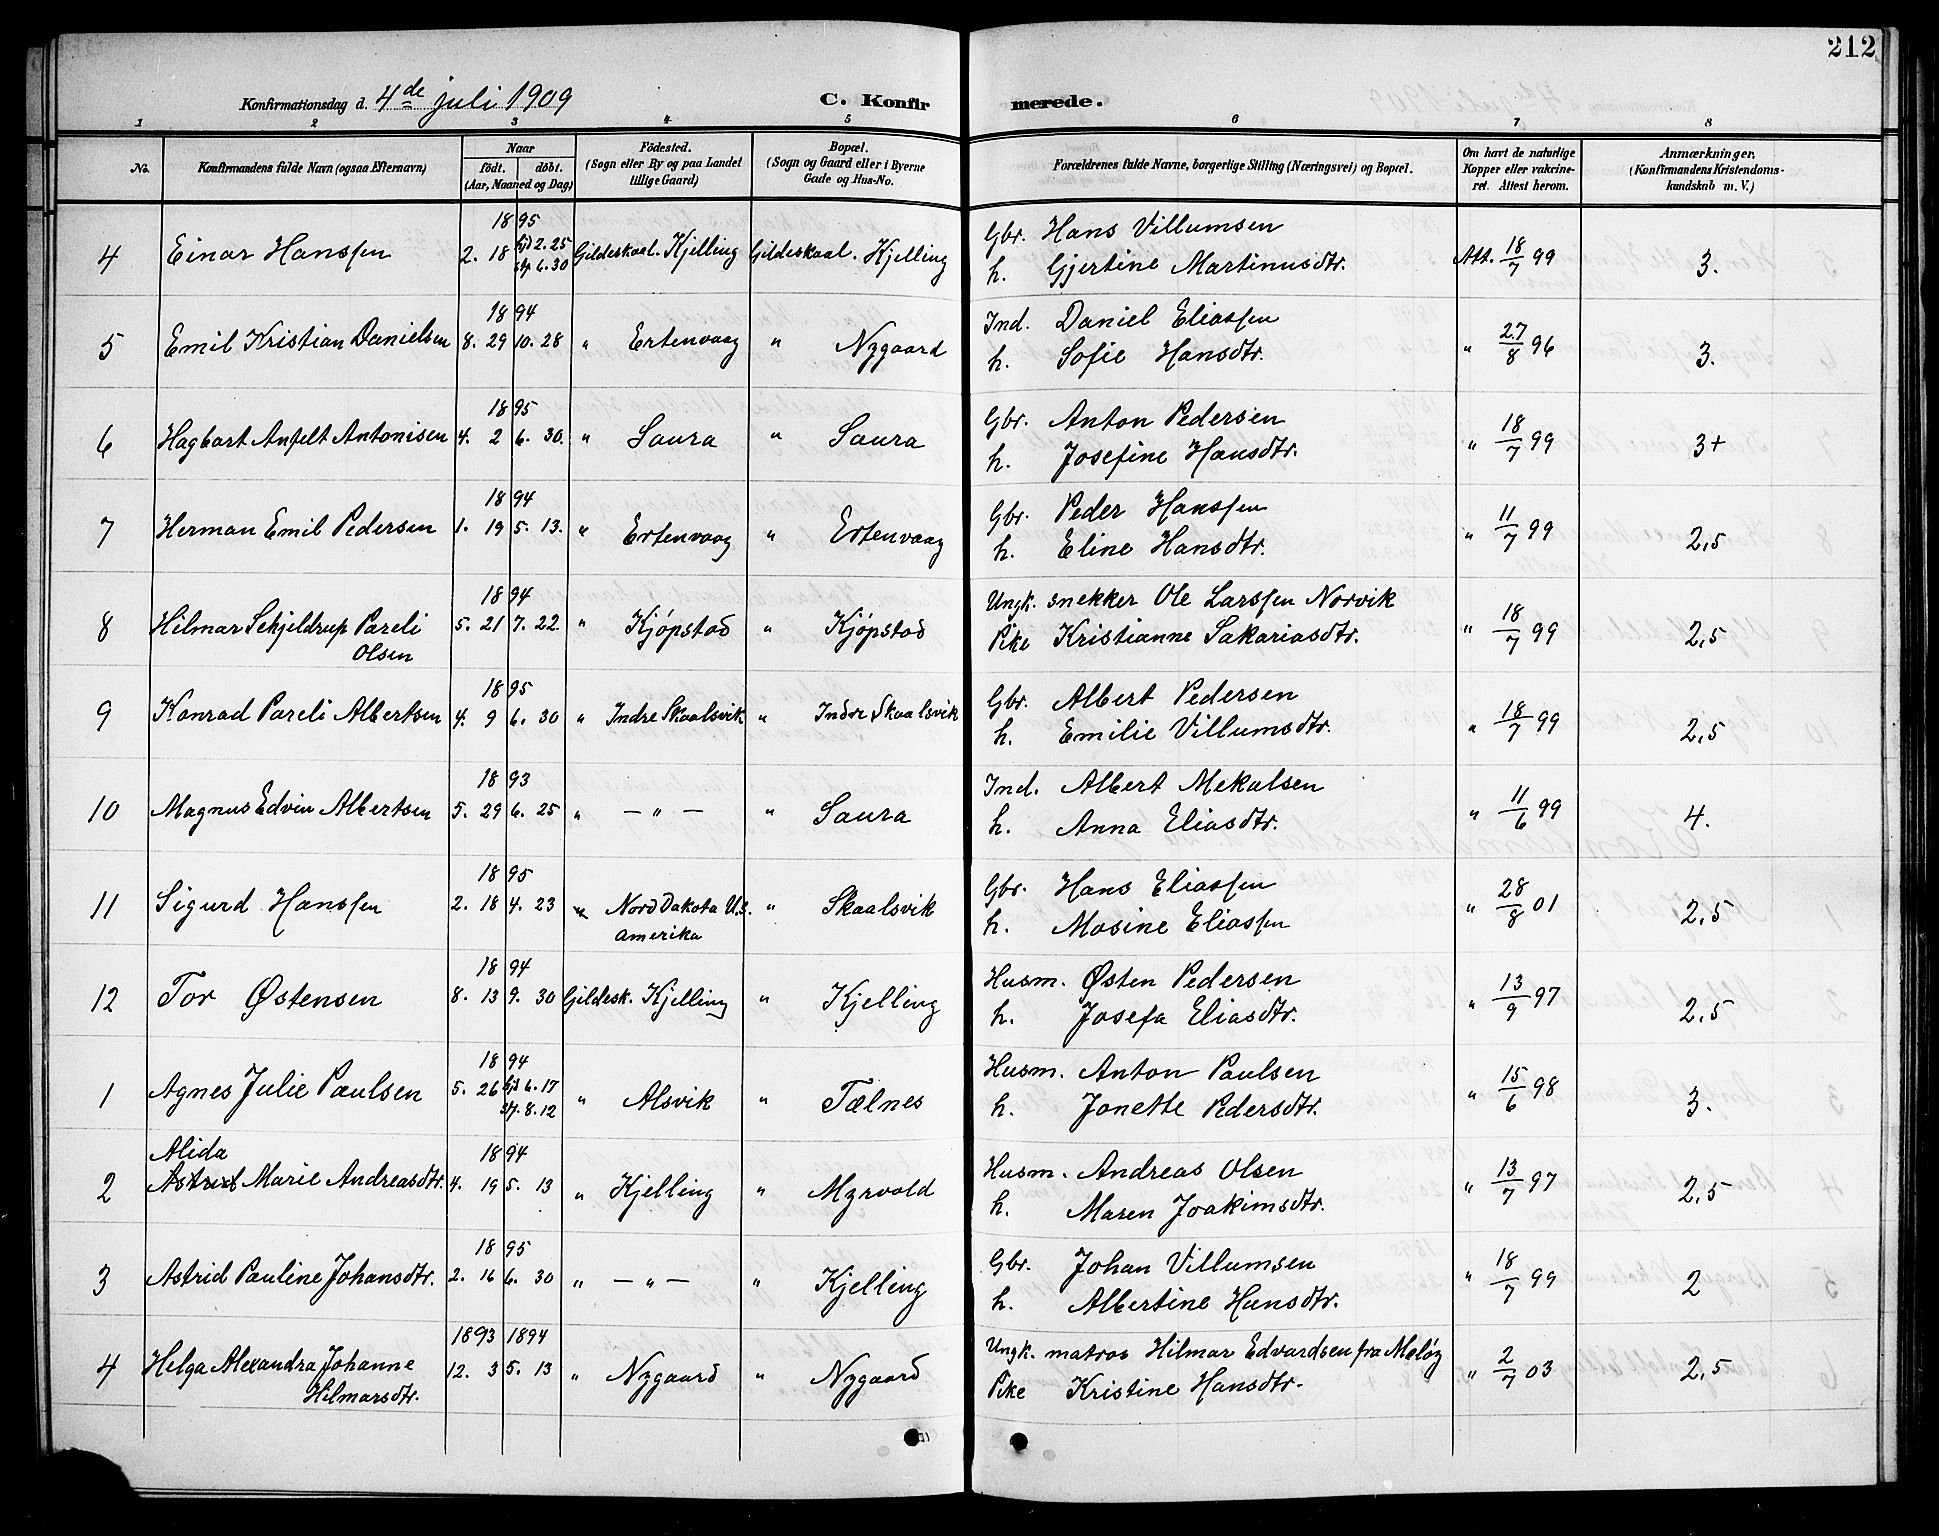 212
Konfirmationsdag d. 4de juli 1909 C. Konfirmerede.
1 2 3 4 5 6 7 8
No. Konfirmandens fulde Navn (ogsaa Efternavn) Naar født. døbt. (Aar, Maaned og Dag) Fødested. (Sogn eller By og paa Landet tillige Gaard) Bopæl. (Sogn og Gaard eller i Byerne Gade og Hus-No. Forældrenes fulde Navne, borgerlige Stilling (Næringsvei) og Bopæl. Om havt de naturlige Kopper eller vakcineret. Attest herom. Anmærkninger, (Konfirmandens Kristendomskundskab m. V.)
1895 Gbr. Hans Villumsen
4 Einar Hanssen 2. 18 hjd 2. 25 Gildeskaal. Kjelling Gildeskaal. Kjelling Att. 18/7 99 3.
stf 6. 30 h. Gjertine Martinusdtr.
1894 Ind. Daniel Eliassen
5 Emil Kristian Danielsen 8. 29 10. 28 " Ertenvaag " Nygaard h. Sofie Hansdtr. " 27/8 96 3.
1895 Gbr. Anton Pedersen
6 Hagbart Anfelt Antonisen 4. 2 6. 30. " Saura " Saura h. Josefine Hansdtr. " 18/7 99 3+
1894 Gbr. Peder Hanssen
7 Herman Emil Pedersen 1. 19 5. 13. " Ertenvaag " Ertenvaag h. Eline Hansdtr. " 11/7 99 2,5
1894 Ungk. snekker Ole Larssen Norvik
8 Hilmar Schjeldrup Pareli 5. 21 7. 22 " Kjøpstad " Kjøpstad Pike Kristianne Sakariasdtr. " 18/7 99 2,5
Olsen
1895 Gbr. Albert Pedersen
9 Konrad Pareli Albertsen 4. 9 6. 30 " Indre Skaalsvik " Indre Skaalsvik h. Emilie Villumsdtr. " 18/7 99 2,5
1893 Ind. Albert Mekalsen
10 Magnus Edvin Albertsen 5. 29 6. 25 " — " — " Saura h. Anna Eliasdtr. " 11/6 99 4.
1895 Gbr. Hans Eliassen
11 Sigurd Hanssen 2. 18 4. 23 " Nord Dakota U.S. " Skaalsvik h. Mosine Eliassen " 28/8 01 2,5
Amerika
1894 Husm. Østen Pedersen
12 Tor Østensen 8. 13 9. 30 Gildesk. Kjelling " Kjelling h. Josefa Eliasdtr. " 13/9 97 2,5
1894 Husm. Anton Paulsen
1 Agnes Julie Paulsen 5. 26 hjd 6. 17 " Alsvik " Tælnes h. Jonette Pedersdtr. " 15/6 98 3.
stf. 8. 12
Alida 1894 Husm. Andreas Olsen
2 Astrid Marie Andreasdtr. 4. 19 5. 13 " Kjelling " Myrvold h. Maren Joakimsdtr. " 13/7 97 2,5
1895 Gbr. Johan Villumsen
3 Astrid Pauline Johansdtr. 2. 16 6. 30 " — " — " Kjelling h. Albertine Hansdtr. " 18/7 99 2
1893 1894 Ungk. matros Hilmar Edvardsen fra Meløy
4 Helga Alexandra Johanne 12. 3 5. 13 " Nygaard " Nygaard Pike Kristine Hansdtr. " 2/7 03 2,5
Hilmarsdtr.